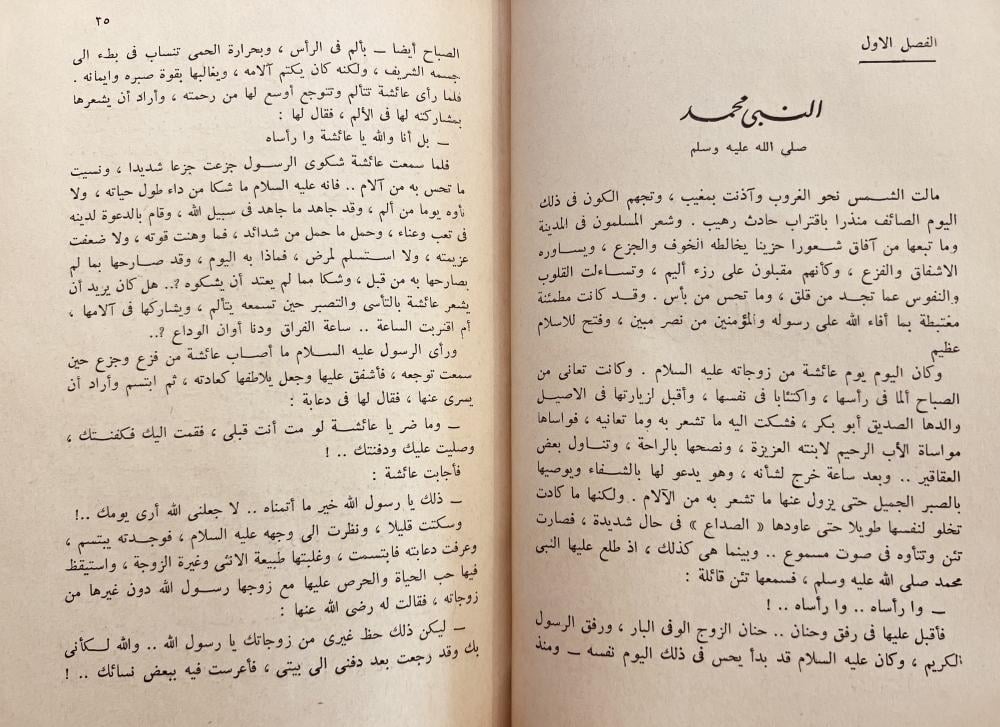 الفصل الاول
النبى محمد
صلى الله عليه وسلم
مالت الشمس نحو الغروب وآذنت بمغيب ، وتجهم الكون فى ذلك
اليوم الصائف منذرا باقتراب حادث رهيب . وشعر المسلمون فى المدينة
وما تبعها من آفاق شعورا حزينا يخالطه الخوف والجزع ، ويساوره
الاشفاق والفزع ، وكأنهم مقبلون على رزء أليم ، وتساءلت القلوب
والنفوس عما تجد من قلق ، وما تحس من بأس . وقد كانت مطمئنة
مغتبطة بما أفاء الله على رسوله والمؤمنين من نصر مبين ، وفتح للاسلام
عظيم
وكان اليوم يوم عائشة من زوجاته عليه السلام . وكانت تعانى من
الصباح ألما فى رأسها ، واكتئابا فى نفسها ، وأقبل لزيارتها فى الاصيل
والدها الصديق أبو بكر ، فشكت اليه ما تشعر به وما تعانيه ، فواساها
مواساة الأب الرحيم لابنته العزيزة ، ونصحها بالراحة ، وتناول بعض
العقاقير .. وبعد ساعة خرج لشأنه ، وهو يدعو لها بالشفاء ويوصيها
بالصبر الجميل حتى يزول عنها ما تشعر به من الآلام . ولكنها ما كادت
تخلو لنفسها طويلا حتى عاودها « الصداع » فى حال شديدة ، فصارت
تئن وتتأوه فى صوت مسموع .. وبينما هى كذلك ، اذ طلع عليها النبى
محمد صلى الله عليه وسلم ، فسمعها تئن قائلة :
ــ وا رأساه .. وا رأساه .. !
فأقبل عليها فى رفق وحنان .. حنان الزوج الوفى البار ، ورفق الرسول
الكريم ، وكان عليه السلام قد بدأ يحس فى ذلك اليوم نفسه ــ ومنذ
٢٥
الصباح أيضا ــ بألم فى الرأس ، وبحرارة الحمى تنساب فى بطء الى
جسمه الشريف ، ولكنه كان يكتم آلامه ، ويغالبها بقوة صبره وايمانه .
فلما رأى عائشة تتألم وتتوجع أوسع لها من رحمته ، وأراد أن يشعرها
بمشاركته لها فى الألم ، فقال لها :
ــ بل أنا والله يا عائشة وا رأساه
فلما سمعت عائشة شكوى الرسول جزعت جزعا شديدا ، ونسيت
ما تحس به من آلام .. فانه عليه السلام ما شكا من داء طول حياته ، ولا
تأوه يوما من ألم ، وقد جاهد ما جاهد فى سبيل الله ، وقام بالدعوة لدينه
فى تعب وعناء ، وحمل ما حمل من شدائد ، فما وهنت قوته ، ولا ضعفت
عزيمته ، ولا استسلم لمرض ، فماذا به اليوم ، وقد صارحها بما لم
يصارحها به من قبل ، وشكا مما لم يعتد أن يشكوه ؟.. هل كان يريد أن
يشعر عائشة بالتأسى والتصبر حين تسمعه يتألم ، ويشاركها فى آلامها ،
أم اقتربت الساعة .. ساعة الفراق ودنا أوان الوداع ؟..
ورأى الرسول عليه السلام ما أصاب عائشة من فزع وجزع حين
سمعت توجعه ، فأشفق عليها وجعل يلاطفها كعادته ، ثم ابتسم وأراد أن
يسرى عنها ، فقال لها فى دعابة :
ــ وما ضر يا عائشة لو مت أنت قبلى ، فقمت اليك فكفنتك ،
وصليت عليك ودفنتك .. !
فأجابت عائشة :
ــ ذلك يا رسول الله خير ما أتمناه .. لا جعلنى الله أرى يومك ..!
وسكتت قليلا ، ونظرت الى وجهه عليه السلام ، فوجدته يبتسم ،
وعرفت دعابته فابتسمت ، وغلبتها طبيعة الانثى وغيرة الزوجة ، واستيقظ
فيها حب الحياة والحرص عليها مع زوجها رسول الله دون غيرها من
زوجاته ، فقالت له رضى الله عنها :
ــ ليكن ذلك حظ غيرى من زوجاتك يا رسول الله .. والله لكأنى
بك وقد رجعت بعد دفنى الى بيتى ، فأعرست فيه ببعض نسائك .. !